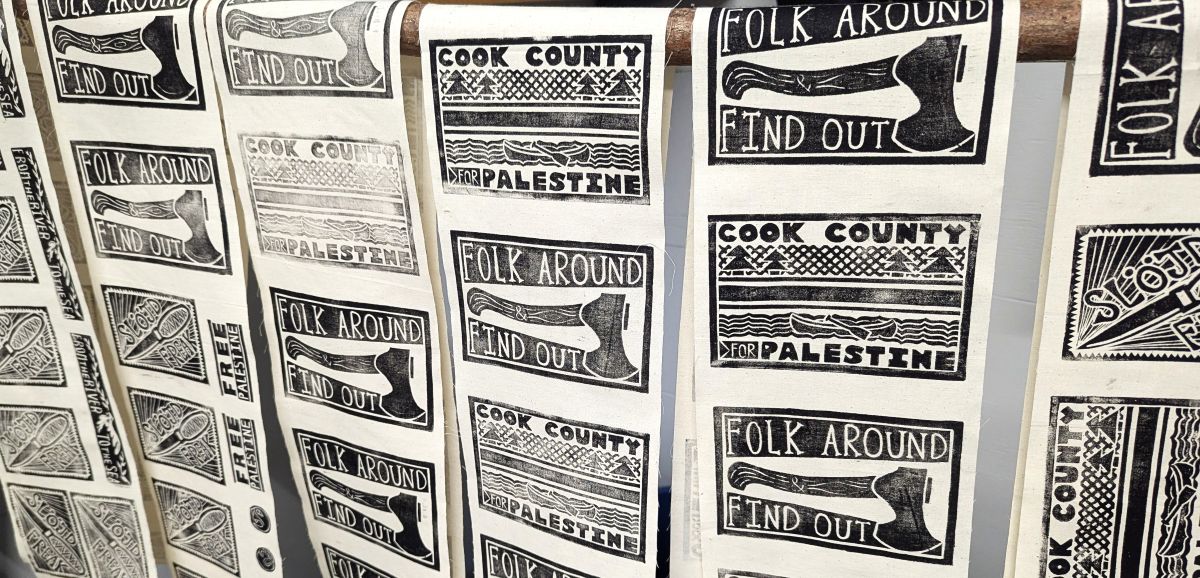 SEA
FROM THE RIVER TO THE SEA
FOLK AROUND
&
FIND OUT
FOLK AROUND
&
FIND OUT
SLÖJD
FREAK
FREE
PALESTINE
SLÖJD
FREAK
FREE
PALESTINE
FIND OUT
COOK COUNTY
FOR PALESTINE
FOLK AROUND
&
FIND OUT
FOLK AROUND
&
FIND OUT
FOLK
COOK COUNTY
FOR PALESTINE
FOLK AROUND
&
FIND OUT
COOK COUNTY
FOR PALESTINE
FOLK AROUND
FOLK AROUND
&
FIND OUT
COOK COUNTY
FOR PALESTINE
FOLK AROUND
&
FIND OUT
FOLK
F
SLÖJ
COOK COUNTY